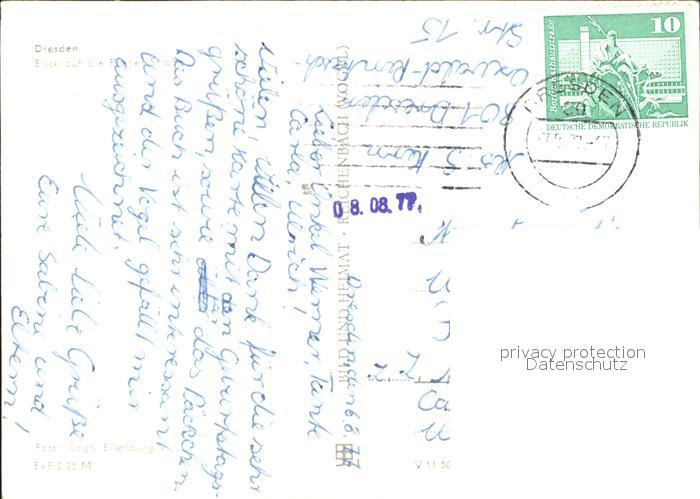 Dresden
Blick auf die
Foto: Vogt, Eilenburg
EVP 0,25 M
V 11 50
BILD UND HEIMAT · REICHENBACH (VOGTL)
Berlin, Rathausstraße
10
DEUTSCHE DEMOKRATISCHE REPUBLIK
DRESDEN
08.08.77.
S. Kern
801 Dresden
Str. 15
Dresden, 6.8.77
Lieber Onkel Werner, Tante
Carla, Ulrich,
Vielen, vielen Dank für die sehr
schöne Karte mit den Geburtstags-
grüßen, sowie für das Päckchen.
Das Buch ist sehr interessant
und der Vogel gefällt mir
ausgezeichnet.
Viele liebe Grüße
Eure Sabine und
Eltern!
privacy protection
Datenschutz